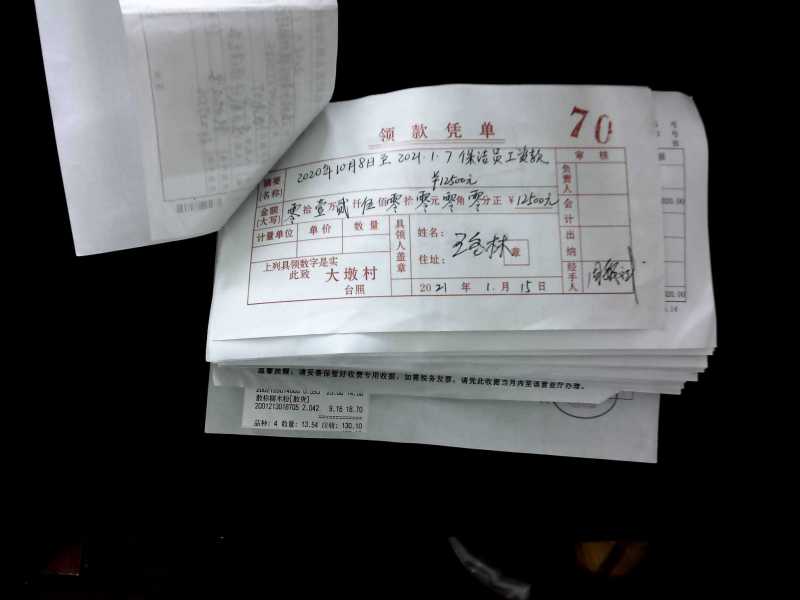 领款凭单
70
摘要(名称) 2020年10月8日至2021.1.7保洁员工资款
¥12500元
审核
金额(大写) 零拾壹万贰仟伍佰零拾零元零角零分正 ¥12500元
计量单位 单价 数量
具领人盖章
姓名:
住址:
章
上列具领数字是实
此致 大墩村
台照
2021年1月15日
负责人
会计
出纳
经手人
温馨提醒:请妥善保管好收费专用收据,如需税务发票,请凭此收据当月内至该营业厅办理。
散棕糯木粉[散货]
2001213018705 2.042 9.16 18.70
品种:4 数量:13.54 应收:130.10